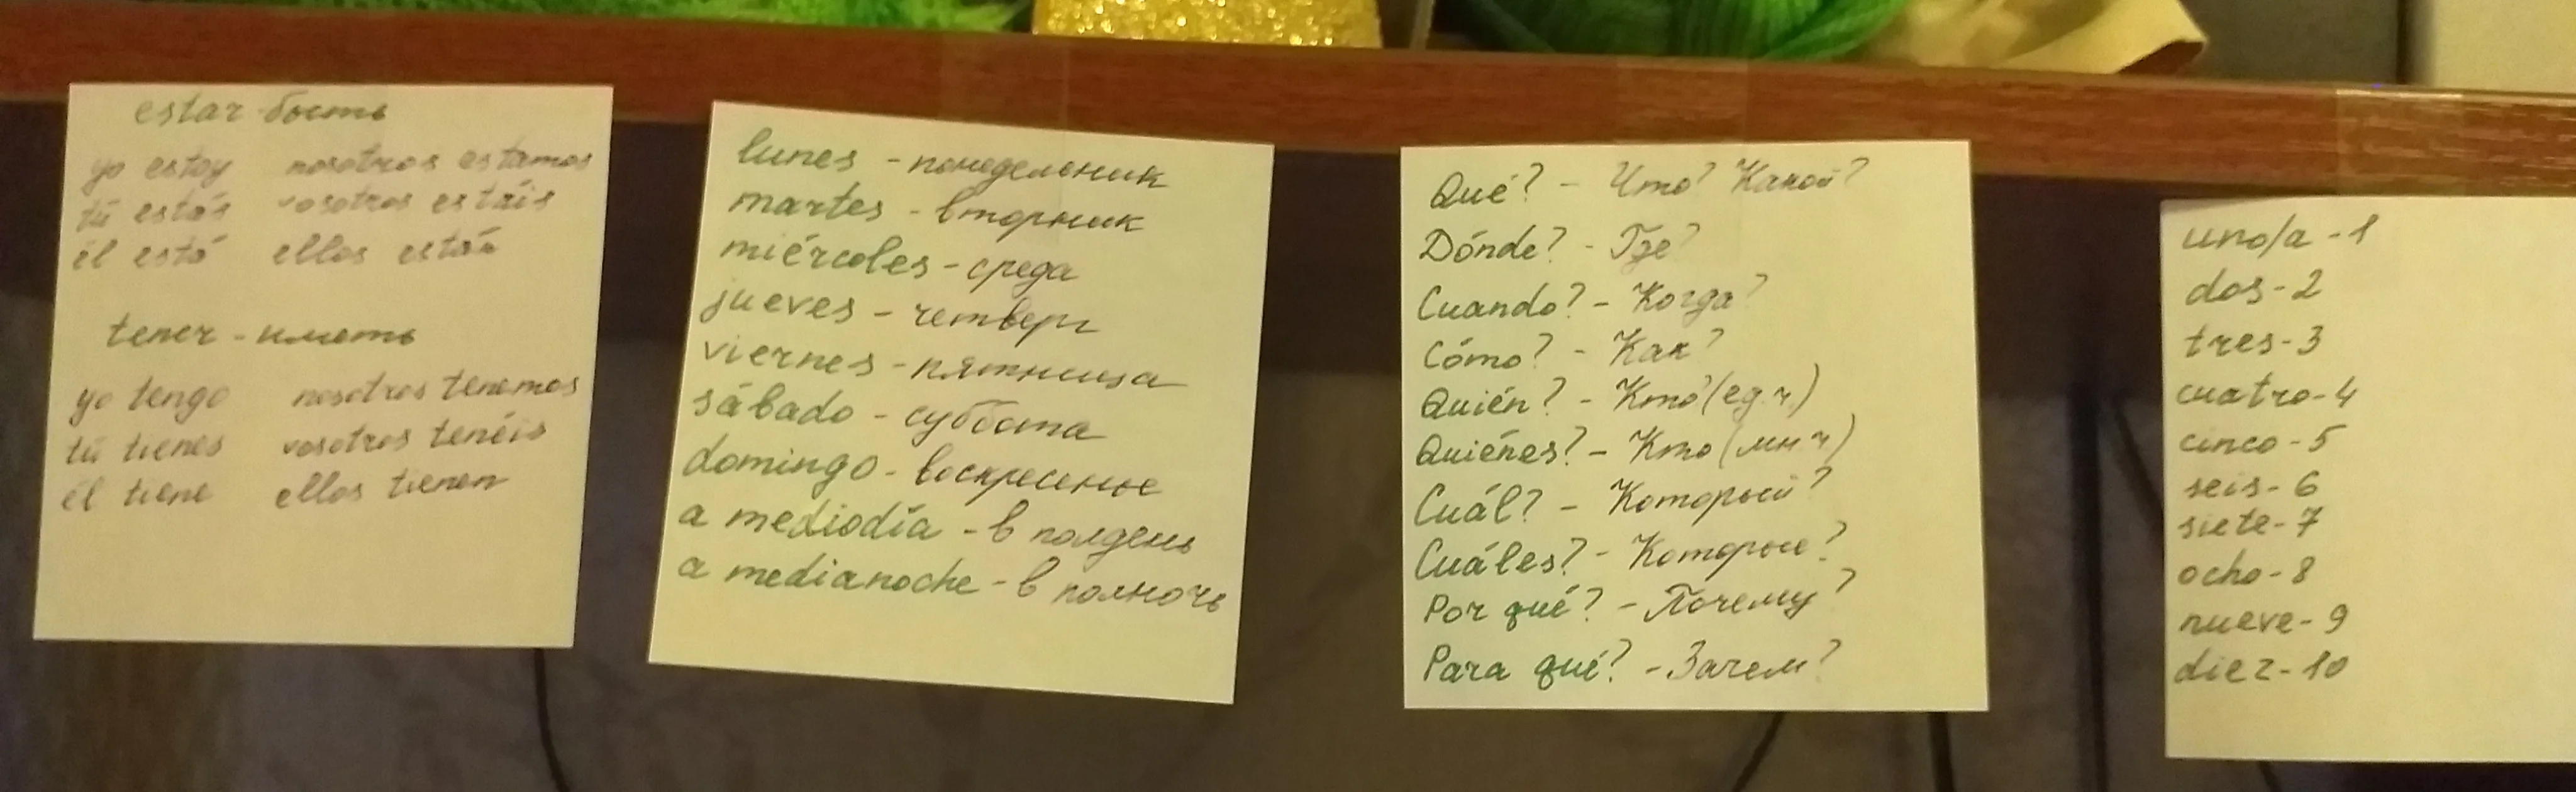 estar - быть
yo estoy nosotros estamos
tú estás vosotros estáis
él está ellos están
tener - иметь
yo tengo nosotros tenemos
tú tienes vosotros tenéis
él tiene ellos tienen
lunes - понедельник
martes - вторник
miércoles - среда
jueves - четверг
viernes - пятница
sábado - суббота
domingo - воскресенье
a mediodía - в полдень
a medianoche - в полночь
Qué? - Что? Какой?
Dónde? - Где?
Cuando? - Когда?
Cómo? - Как?
Quién? - Кто? (ед.ч.)
Quiénes? - Кто (мн ч)
Cuál? - Который?
Cuáles? - Которые?
Por qué? - Почему?
Para qué? - Зачем?
uno/a - 1
dos - 2
tres - 3
cuatro - 4
cinco - 5
seis - 6
siete - 7
ocho - 8
nueve - 9
diez - 10